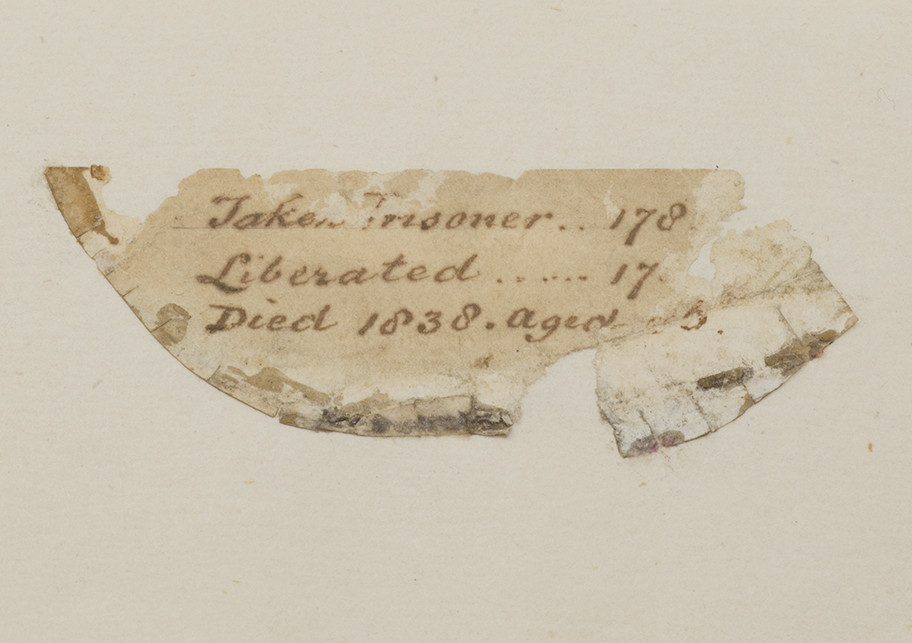 Taken Prisoner .. 178
Liberated ...... 17
Died 1838. Aged 3.